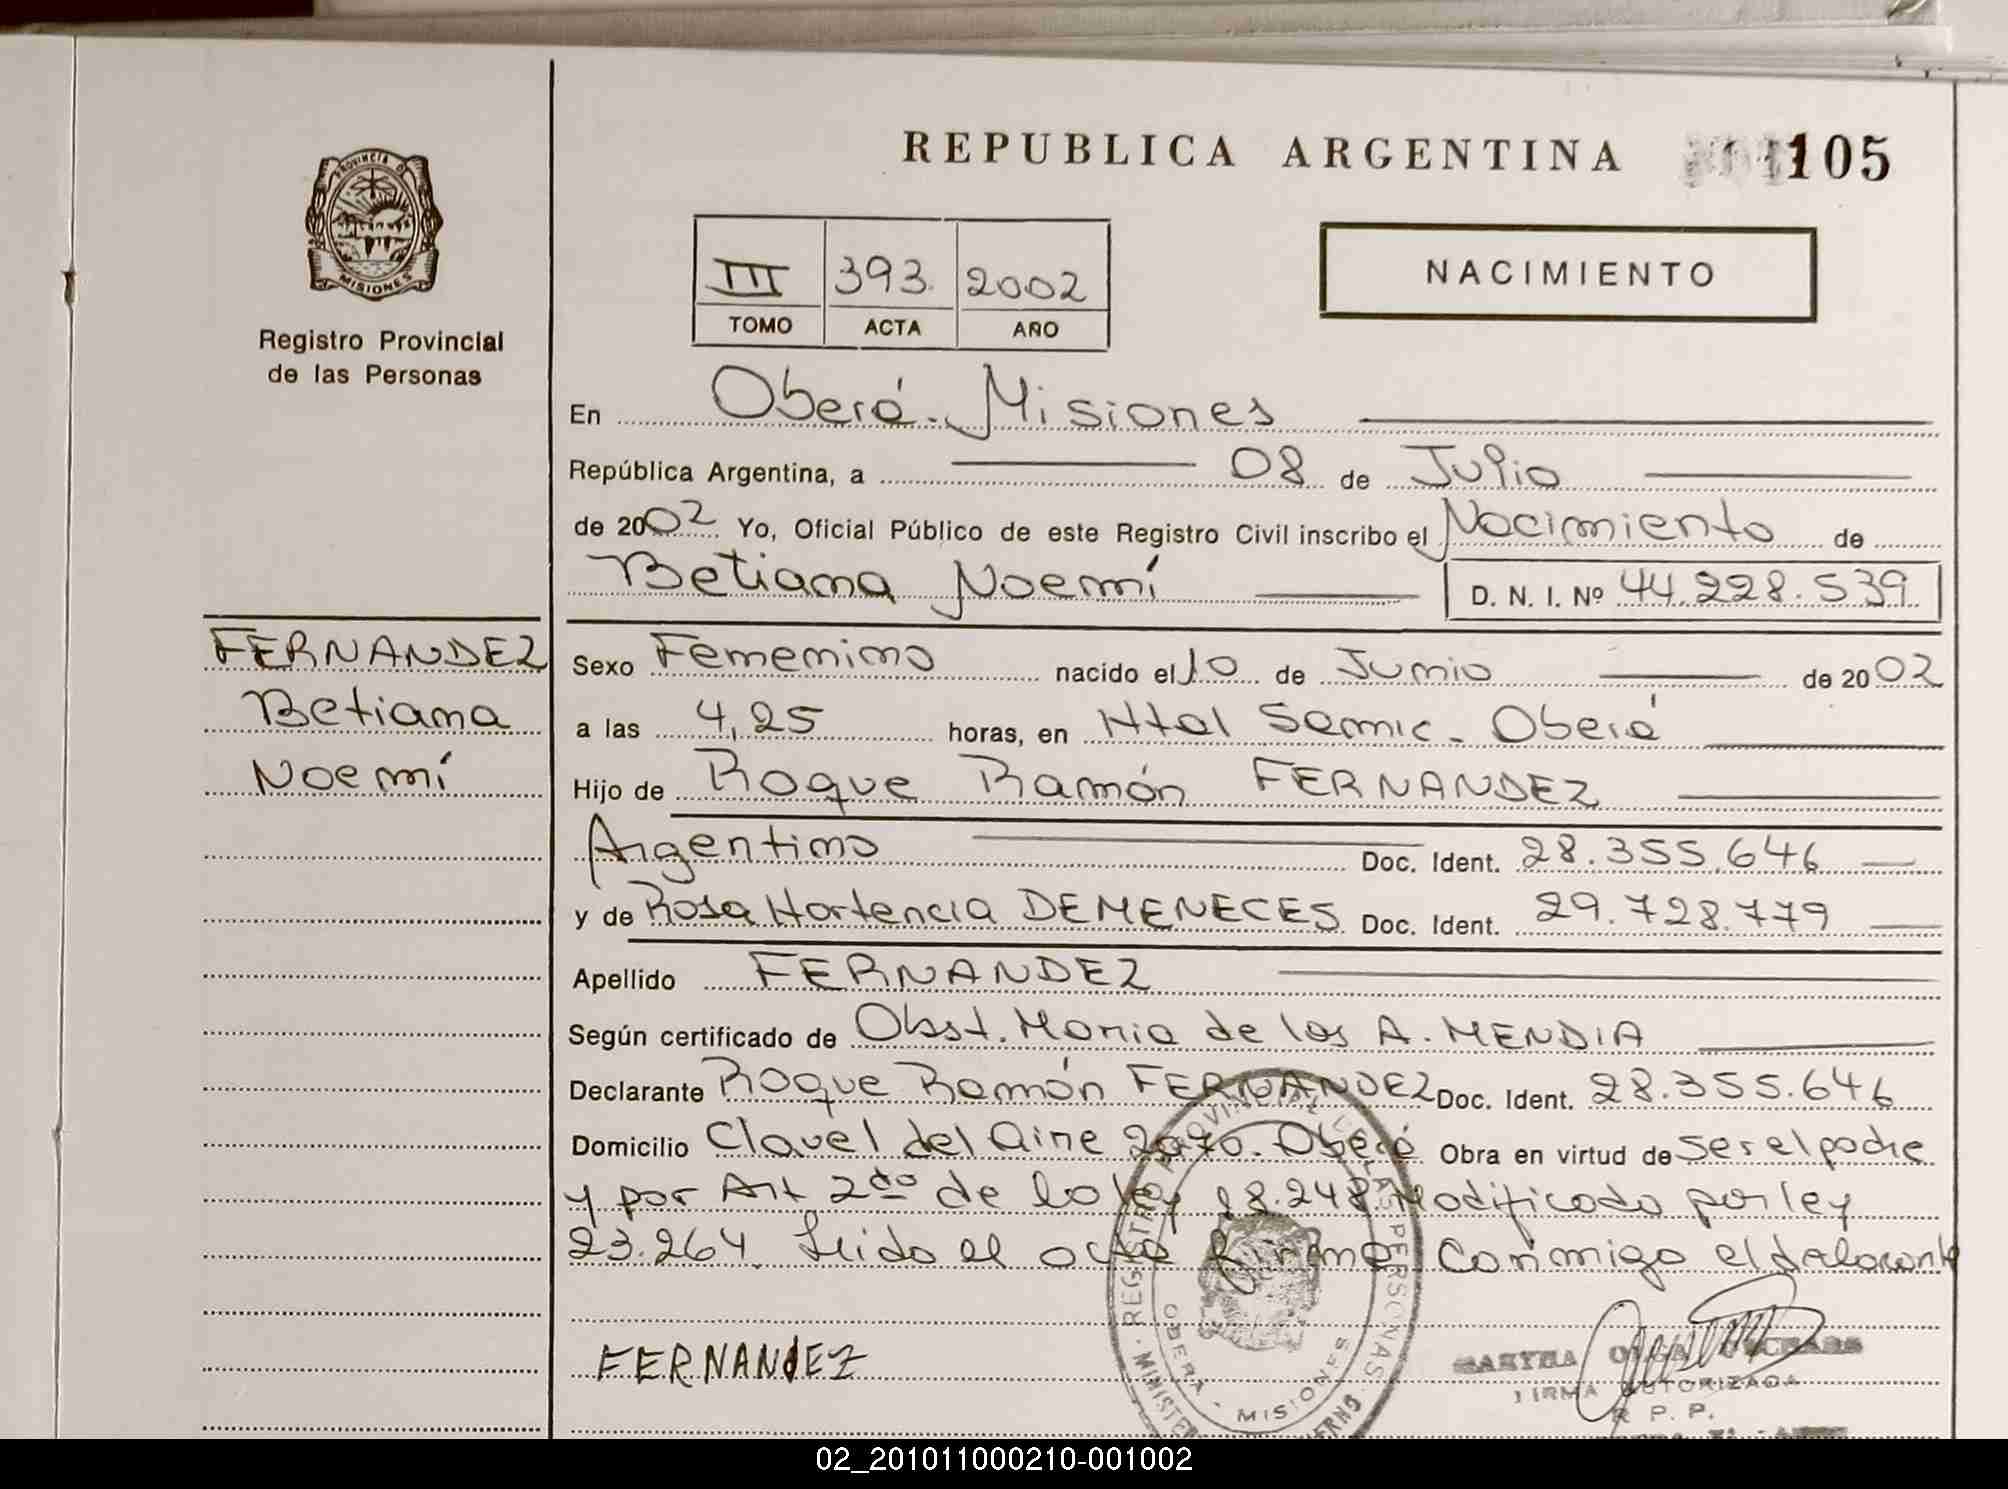 REPUBLICA ARGENTINA 105
PROVINCIA D MISIONES
Registro Provincial
de las Personas
III 393. 2002
TOMO ACTA AÑO
NACIMIENTO
En Oberá - Misiones
República Argentina, a 08 de Julio
de 2002 Yo, Oficial Público de este Registro Civil inscribo el Nacimiento de
Betiana Noemí D. N. I. Nº 44.228.539
FERNANDEZ
Betiana
Noemí
Sexo Femenino nacido el 10 de Junio de 2002
a las 4,25 horas, en Htal Samic - Oberá
Hijo de Roque Ramón FERNANDEZ
Argentino Doc. Ident. 28.355.646
y de Rosa Hortencia DEMENECES Doc. Ident. 29.728.779
Apellido FERNANDEZ
Según certificado de Obst. Maria de los A. MENDIA
Declarante Roque Ramón FERNANDEZ Doc. Ident. 28.355.646
Domicilio Clavel del Aire Oberá Obra en virtud de ser el padre
y por Art 2do de la ley 18.248 Modificado por ley
23.264. Leido el acta firma conmigo el declarante
FERNANDEZ
REGISTRO PROVINCIAL DE LAS PERSONAS
OBERA - MISIONES
OLGA
FIRMA AUTORIZADA
R. P. P.
02_201011000210-001002